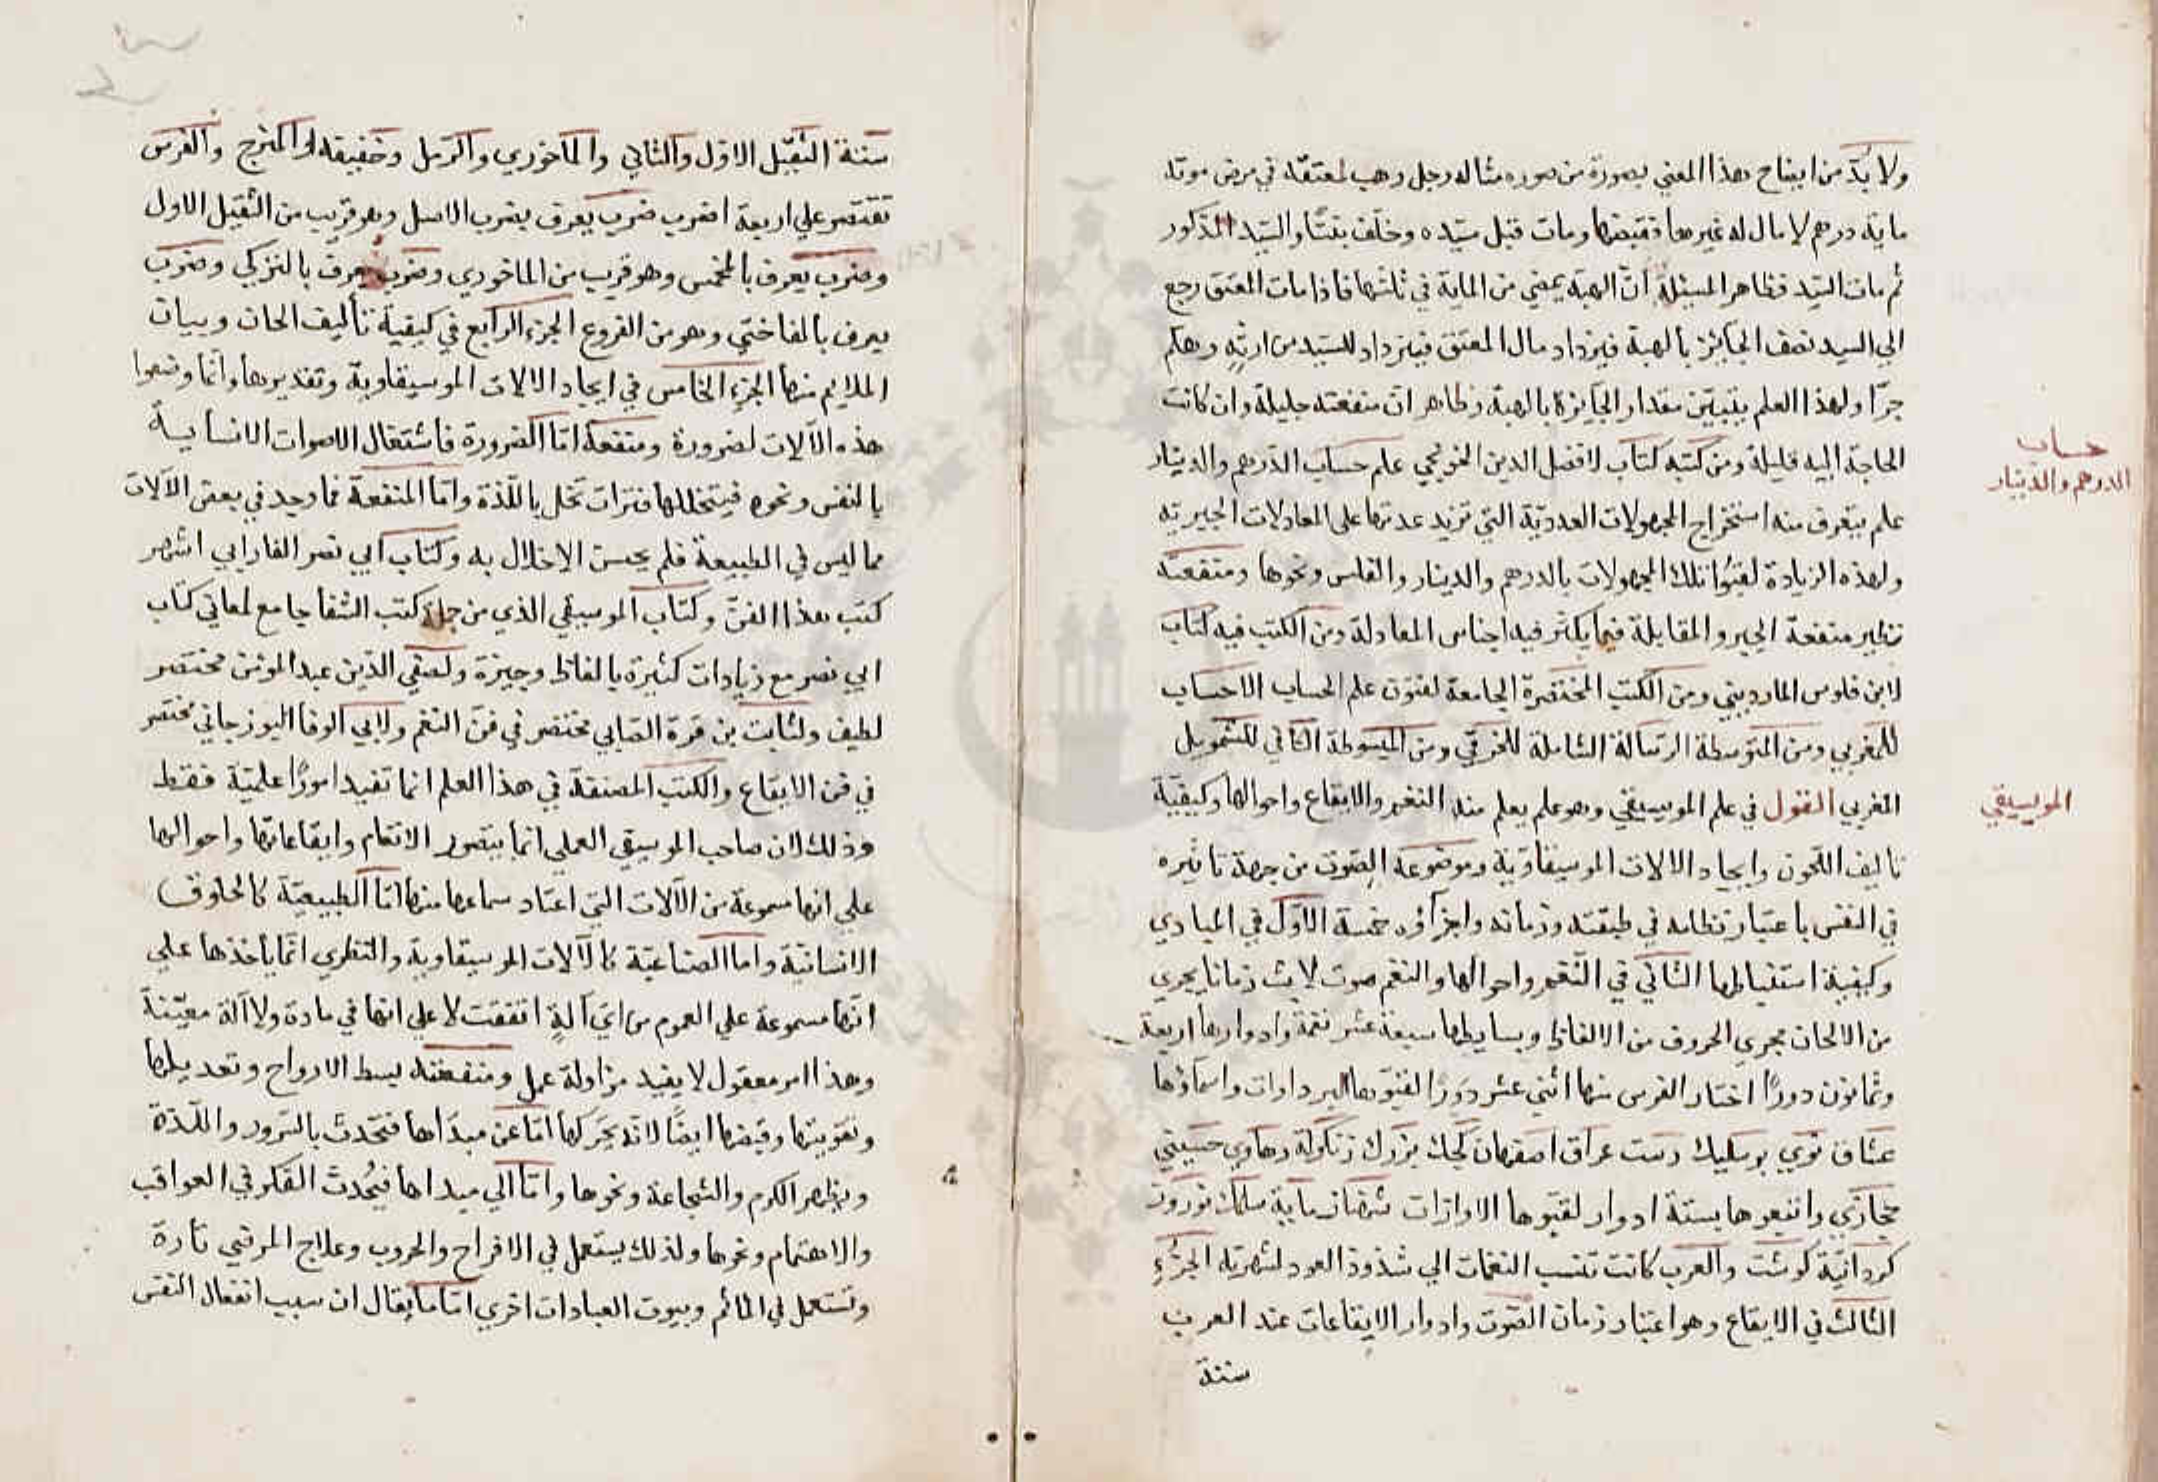 ولا بدّ من ايضاح هذا المعني بصورة من صوره مثاله رجل وهب لمعتقه في مرض موته
ماية درهم لا مال له غيرها فقبضها ومات قبل سيّده وخلّف بنتا والسّيد المذكور
ثم مات السّيد فظاهر المسئلة انّ الهبة يمضي من الماية في ثلثها فاذا مات المعتق رجع
الي السيد نصف الجايز بالهبة فيزداد مال المعتق فيزداد للسيد من ارثه وهلم
جرّا ولهذا العلم يتبيّن مقدار الجايزة بالهبة وظاهر انّ منفعته جليلة وان كانت
الحاجة اليه قليلة ومن كتبه كتاب لافضل الدين الخونجي علم حساب الدرهم والدينار
حساب
الدرهم والدينار
علم يتعرف منه استخراج المجهولات العدديّة التي تزيد عدتها علي المعادلات الجبريّه
ولهذه الزيادة لقبوا تلك المجهولات بالدرهم والدينار والفلس ونحوها ومنفعته
نظير منفعة الجبر والمقابلة فيما يكثر فيه اجناس المعادلة ومن الكتب فيه كتاب
لابن فلوس الماردبيني ومن الكتب المختصرة الجامعة لفنون علم الحساب الاحساب
للمغربي ومن المتوسطة الرسالة الشاملة للخرقي ومن المبسوطة الكافي للسّموئيل
المغربي القول في علم الموسيقي وهو علم يعلم منه النغم والايقاع واحوالها وكيفيّة
الموسيقي
تاليف اللحون وايجاد الالات الموسيقاويّة وموضوعه الصّوت من جهة تاثيره
في النفس باعتبار نظامه في طبقته وزمانه واجزآؤه خمسة الاوّل في المبادي
وكيفية استنباطها الثاني في النّغم واحوالها والنغم صوت لابث زمانا يجري
من الالحان مجري الحروف من الالفاظ وبسايطها سبعة عشر نغمة وادوارها اربعة
وثمانون دورًا اختار الفرس منها اثني عشر دورًا لقبوها البرداوات واسمآؤها
عشاق نوي بوسليك رست عراق اصفهان كجك بزرك زنكولة رهاوي حسيني
حجازي واتبعوها بستة ادوار لقبوها الاوازات شهناز ماية سلمك نوروز
كردانيّة كوشت والعرب كانت تنسب النغمات الي شذوذ العود لشهرته الجزء
الثالث في الايقاع وهو اعتبار زمان الصّوت وادوار الايقاعات عند العرب
ستة
ستة الثقيل الاول والثاني والماخوري والرّمل وخفيفه والهزج والفرس
تقتصر علي اربعة اضرب ضرب يعرف بضرب الاصل وهو قريب من الثقيل الاول
وضرب يعرف بالمخمس وهو قريب من الماخوري وضرب يعرف بالتركي وضرب
يعرف بالفاختي وهو من الفروع الجزء الرابع في كيفية تأليف الحان وبيان
الملايم منها الجزء الخامس في ايجاد الالات الموسيقاوية وتقديرها وانّما وضعوا
هذه الآلات لضرورة ومنفعة امّا الضرورة فاشتغال الاصوات الانسانيّة
بالنفس ونحوه فيتخللها فترات تخل باللّذة وامّا المنفعة فما وجد في بعض الآلات
مما ليس في الطبيعة فلم يحسن الاخلال به وكتاب ابي نصر الفارابي اشهر
كتب هذا الفنّ وكتاب الموسيقي الذي من جملة كتب الشفا جامع لمعاني كتاب
ابي نصر مع زيادات كثيرة بالفاظ وجيزة ولصفي الدّين عبد المومن مختصر
لطيف ولثابت بن قرة الصّابي مختصر في فنّ النغم ولابي الوفا البوزجاني مختصر
في فن الايقاع والكتب المصنفة في هذا العلم انما تفيد امورًا علميّة فقط
وذلك لان صاحب الموسيقي العملي انما يتصور الانغام وايقاعاتها واحوالها
علي انها مسموعة من الآلات التي اعتاد سماعها منها امّا الطبيعيّة كالحلوق
الانسانيّة واما الصناعيّة كالآلات الموسيقاوية والنظري انّما يأخذها علي
انّها مسموعة علي العموم من ايّ آلةٍ اتفقت لا علي انها في مادة ولا آلة معيّنة
وهذا امر معقول لا يفيد مزاولة عمل ومنفعته بسط الارواح وتعديلها
وتقويتها وقبضها ايضًا لانه يحركها امّا عن مبدأها فتحدث بالسّرور واللّذة
ويظهر الكرم والشجاعة ونحوها وامّا الي مبداها فيُحدث الفكر في العواقب
والاهتمام ونحوها ولذلك يستعمل في الافراح والحروب وعلاج المرضي تارة
وتستعمل في المآتم وبيوت العبادات اخري امّا ما يقال ان سبب انفعال النفس